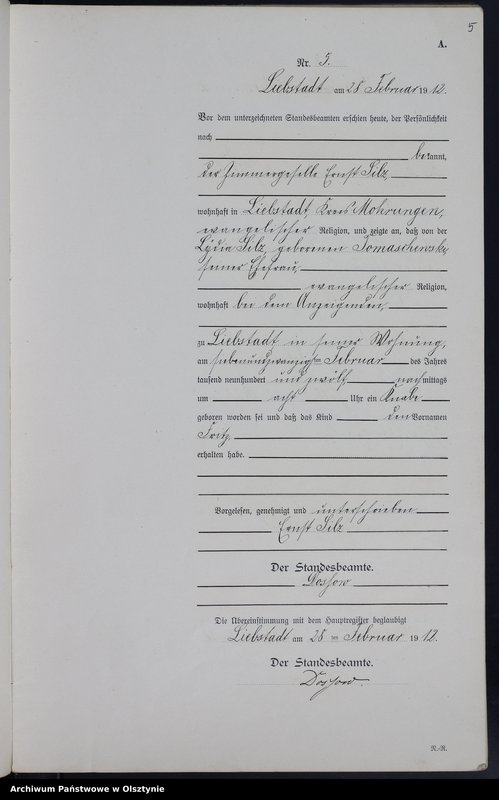 5
A.
Nr. 5.
Liebstadt am 28 Februar 1912.
Vor dem unterzeichneten Standesbeamten erschien heute, der Persönlichkeit
nach
bekannt,
der Zimmergeselle Ernst Silz,
wohnhaft in Liebstadt, Kreis Mohrungen,
evangelischer Religion, und zeigte an, daß von der
Lydia Silz, geborenen Tomaschewski,
seiner Ehefrau,
evangelischer Religion,
wohnhaft bei dem Anzeigenden,
zu Liebstadt in seiner Wohnung,
am siebenundzwanzigsten Februar des Jahres
tausend neunhundert und zwölf nachmittags
um acht Uhr ein Knabe
geboren worden sei und daß das Kind den Vornamen
Fritz
erhalten habe.
Vorgelesen, genehmigt und unterschrieben
Ernst Silz
Der Standesbeamte.
Dossow
Die Übereinstimmung mit dem Hauptregister beglaubigt
Liebstadt am 28ten Februar 1912.
Der Standesbeamte.
Dossow.
N.-R.
Archiwum Państwowe w Olsztynie